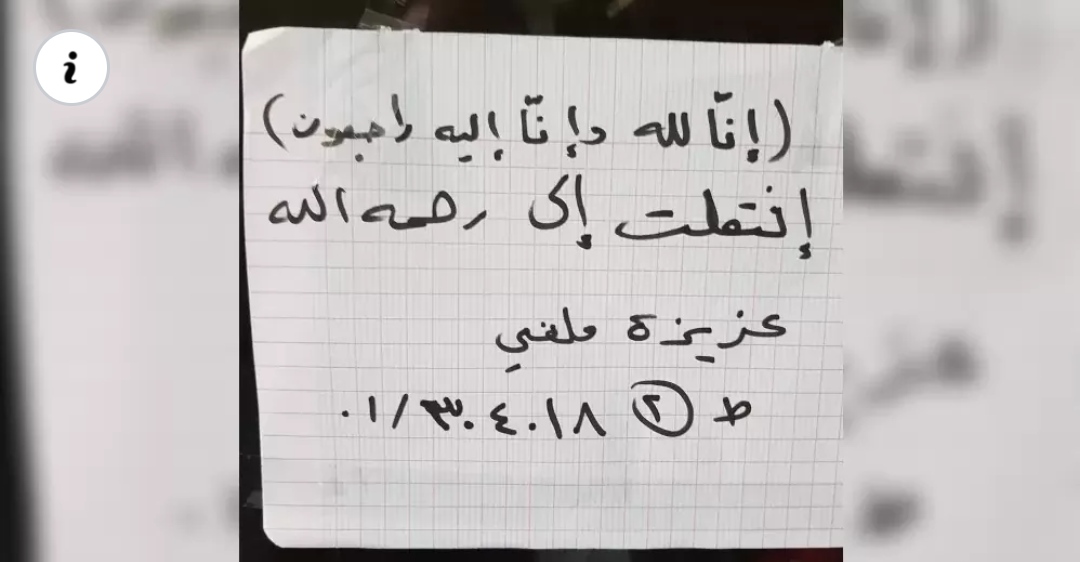 (إنّا لله وإنّا إليه راجعون)
إنتقلت إلى رحمه الله
عزيزة ملفي
ط ٢ ٠١/٣٠٤٠١٨